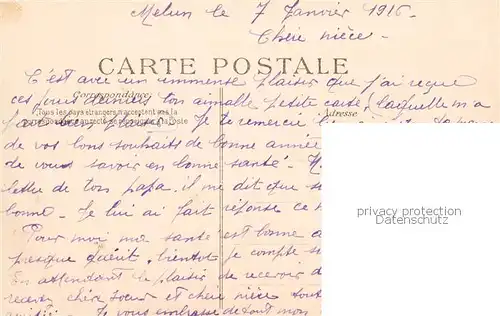 Melun le 7 Janvier 1916.
Chère nièce -
CARTE POSTALE
C'est avec un immense plaisir que j'ai reçue
Correspondance
ces jours derniers ton aimable petite carte, laquelle m'a
Tous les pays étrangers n'acceptent pas la
Adresse
fait bien plaisir. Je te remercie
de vos bons souhaits de bonne année
de vous savoir en bonne santé.
lettre de ton Papa. il me dit que
bonne. Je lui ai fait réponse ce
Pour moi ma santé est bonne
presque guérit. bientot je compte
En attendant le plaisir de recevoir
recevez chère soeur et chère nièce
Je vous embrasse de tout mon
privacy protection
Datenschutz